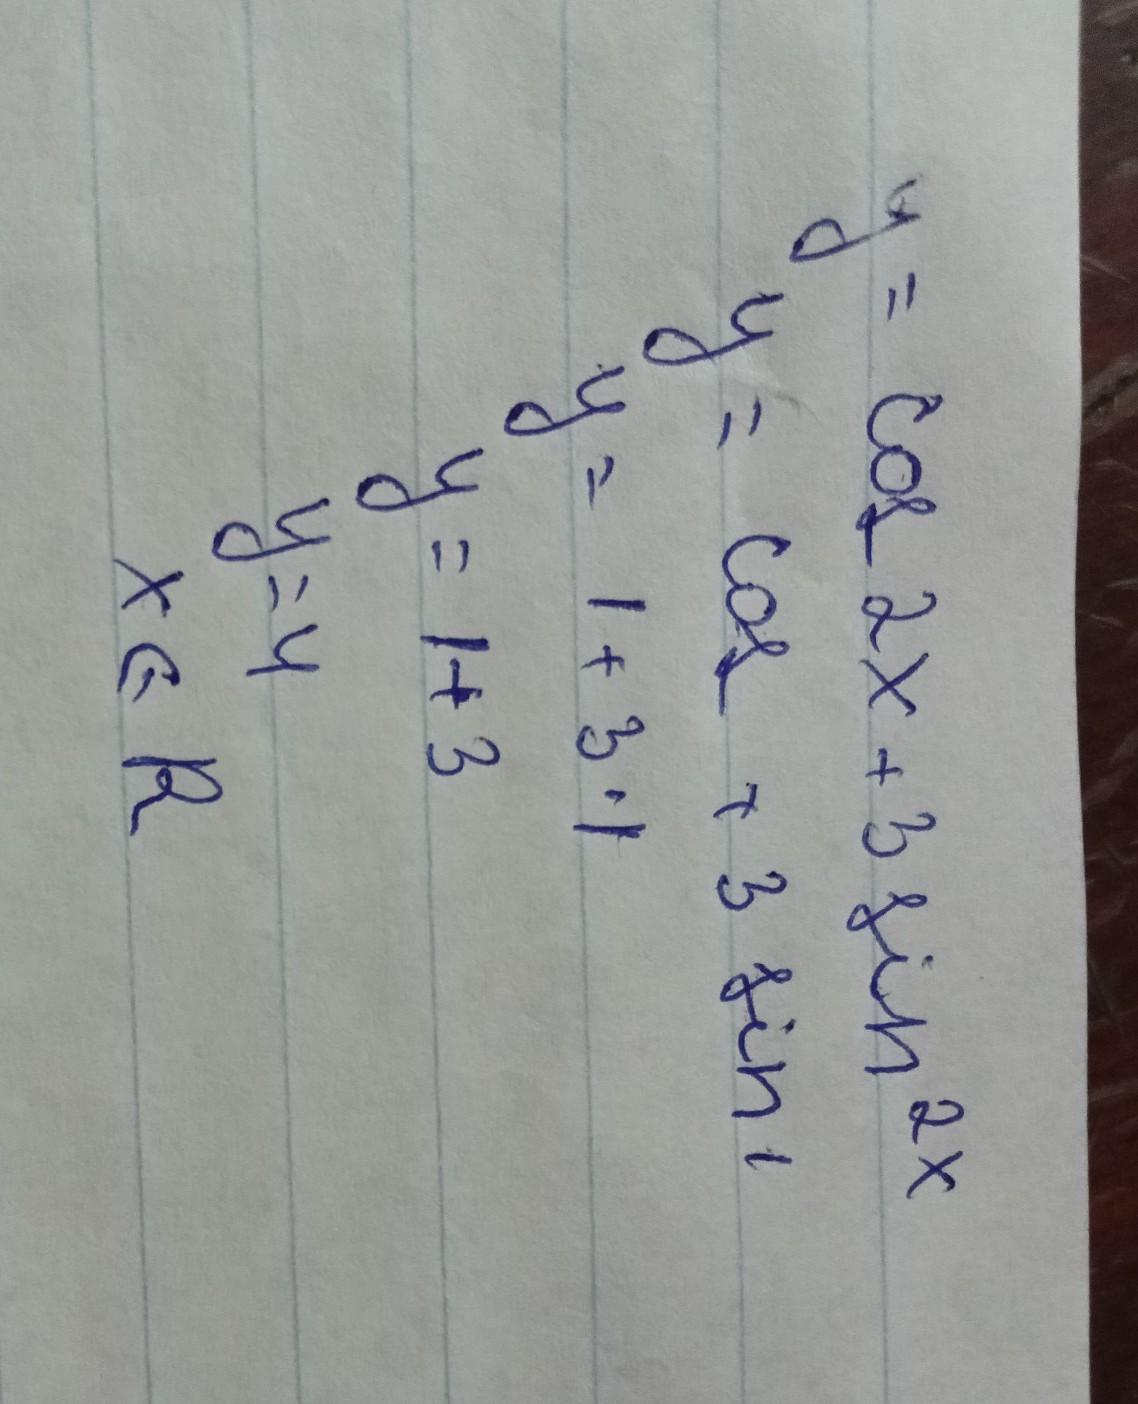 y = cos 2x + 3 sin²x
y = cos + 3 sin 1
y = 1 + 3 · 1
y = 1 + 3
y = 4
x ∈ R